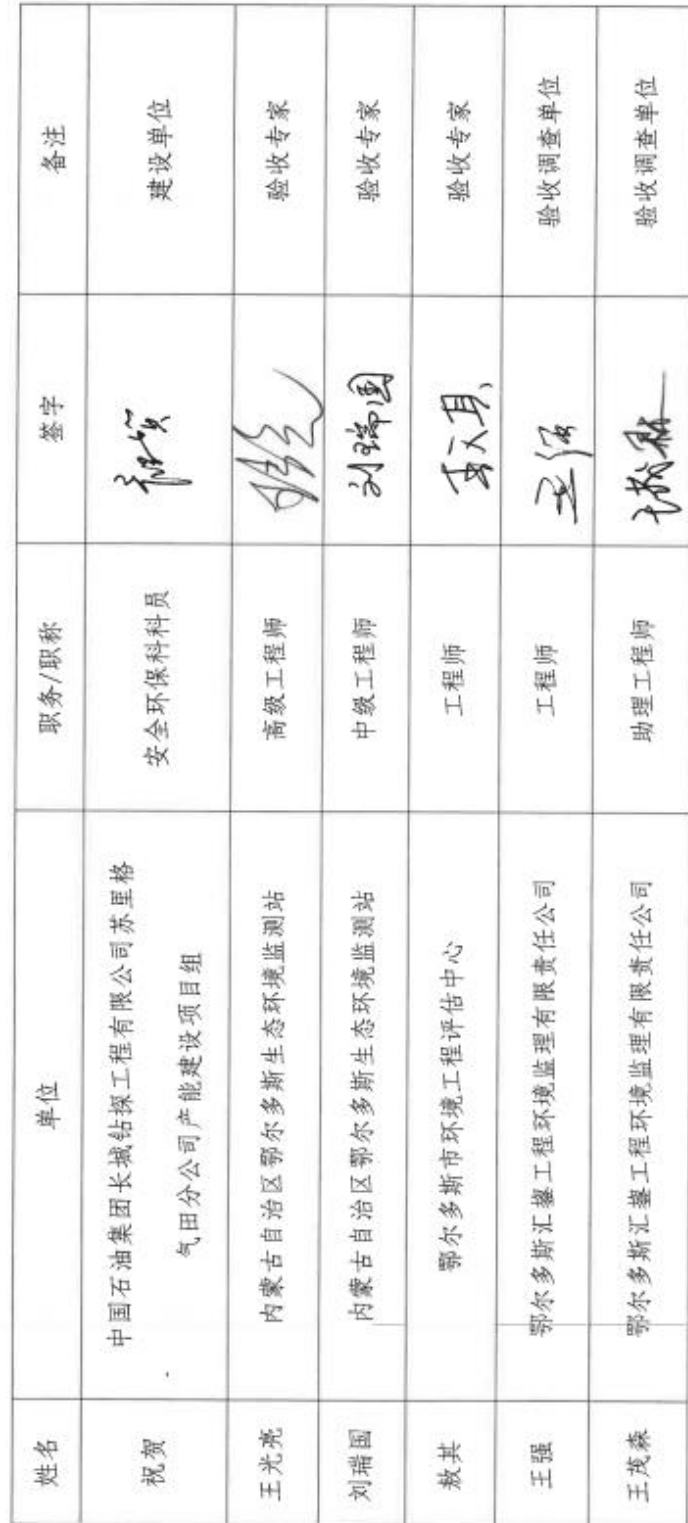 姓名 单位 职务/职称 签字 备注
祝贺 中国石油集团长城钻探工程有限公司苏里格 安全环保科科员 祝贺 建设单位
气田分公司产能建设项目组
王光亮 内蒙古自治区鄂尔多斯生态环境监测站 高级工程师 验收专家
刘瑞国 内蒙古自治区鄂尔多斯生态环境监测站 中级工程师 刘瑞国 验收专家
敖其 鄂尔多斯市环境工程评估中心 工程师 验收专家
王强 鄂尔多斯汇鋆工程环境监理有限责任公司 工程师 王强 验收调查单位
王茂森 鄂尔多斯汇鋆工程环境监理有限责任公司 助理工程师 王茂森 验收调查单位